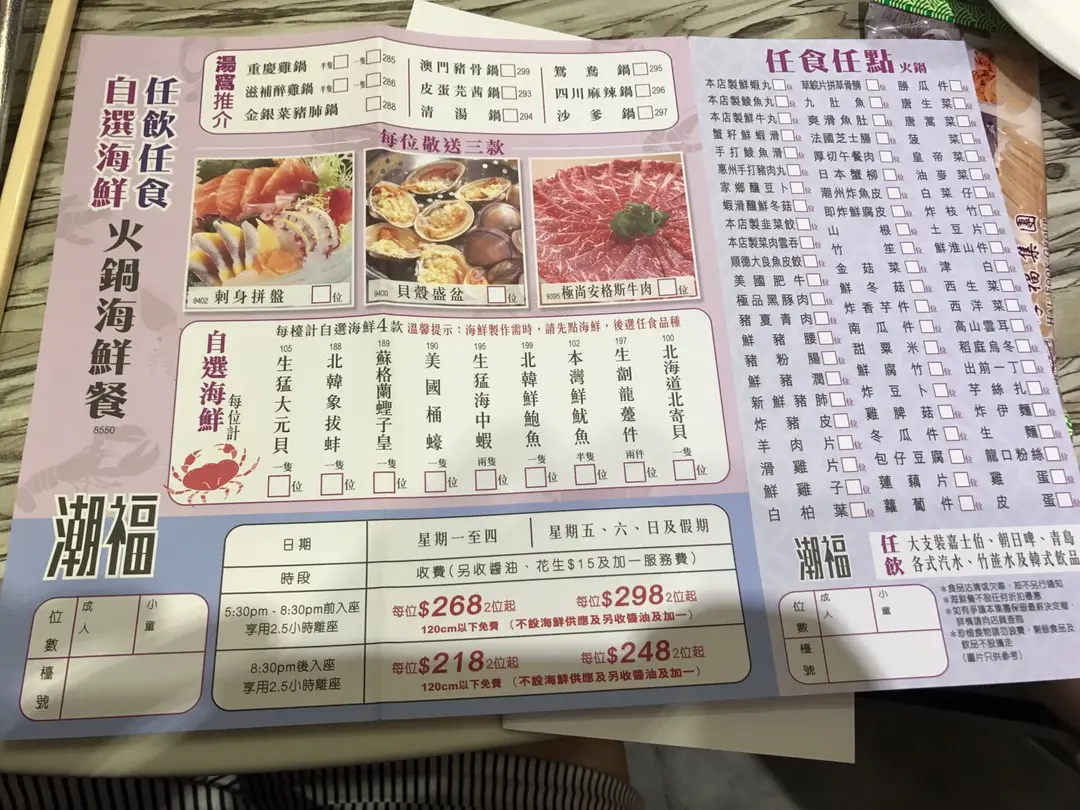 任飲任食
自選海鮮
火鍋海鮮餐
8550
潮福
位數
成人
小童
檯號
湯窩推介
重慶雞鍋 半隻 一隻 285
滋補醉雞鍋 半隻 一隻 286
金銀菜豬肺鍋 288
澳門豬骨鍋 299
皮蛋芫茜鍋 293
清湯鍋 294
鴛鴦鍋 295
四川麻辣鍋 296
沙爹鍋 297
每位敬送三款
9402 刺身拼盤 位
9400 貝殼盛盆 位
9395 極尚安格斯牛肉 位
自選海鮮
每位計
每檯計自選海鮮4款 溫馨提示：海鮮製作需時，請先點海鮮，後選任食品種
105 生猛大元貝 一隻 位
188 北韓象拔蚌 一隻 位
189 蘇格蘭蟶子皇 一隻 位
190 美國桶蠔 一隻 位
195 生猛海中蝦 兩隻 位
199 北韓鮮鮑魚 一隻 位
102 本灣鮮魷魚 半隻 位
197 生劏龍躉件 兩件 位
100 北海道北寄貝 一隻 位
日期 星期一至四 星期五、六、日及假期
時段 收費(另收醬油、花生$15及加一服務費)
5:30pm - 8:30pm前入座
享用2.5小時離座
每位$268 2位起 每位$298 2位起
120cm以下免費 (不設海鮮供應及另收醬油及加一)
8:30pm後入座
享用2.5小時離座
每位$218 2位起 每位$248 2位起
120cm以下免費 (不設海鮮供應及另收醬油及加一)
任食任點 火鍋
本店製鮮蝦丸 位
本店製鮫魚丸 位
本店製鮮牛丸 位
蟹籽鮮蝦滑 位
手打鯪魚滑 位
惠州手打豬肉丸 位
家鄉釀豆卜 位
蝦滑釀鮮冬菇 位
本店製韭菜餃 位
本店製菜肉雲吞 位
順德大良魚皮餃 位
美國肥牛 位
極品黑豚肉 位
豬夏青肉 位
鮮豬腰 位
豬粉腸 位
鮮豬潤 位
新鮮豬肺 位
炸豬皮 位
羊肉片 位
滑雞片 位
鮮雞子 位
白柏葉 位
草鯇片拼草骨腩 位
九肚魚 位
爽滑魚肚 位
法國芝士腸 位
厚切午餐肉 位
日本蟹柳 位
潮州炸魚皮 位
即炸鮮腐皮 位
山根 位
竹笙 位
金菇菜 位
鮮冬菇 位
炸香芋件 位
南瓜件 位
甜粟米 位
鮮腐竹 位
炸豆卜 位
雞脾菇 位
冬瓜件 位
包仔豆腐 位
蓮藕片 位
蘿蔔件 位
勝瓜件 位
唐生菜 位
唐蒿菜 位
菠菜 位
皇帝菜 位
油麥菜 位
白菜仔 位
炸枝竹 位
土豆片 位
鮮淮山件 位
津白 位
西生菜 位
西洋菜 位
高山雲耳 位
稻庭烏冬 位
出前一丁 位
芋絲扎 位
炸伊麵 位
生麵 位
龍口粉絲 位
雞蛋 位
皮蛋 位
潮福
任飲
大支裝嘉士伯、朝日啤、青島
各式汽水、竹蔗水及韓式飲品
位數
成人
小童
檯號
*食品沽清或欠奉，恕不另行通知
*海鮮餐不設任何折扣優惠
*如有爭議本集團保留最終決定權，
詳情請向店員查詢
*珍惜食物請勿浪費，剩餘食品及
飲品不設攜走
(圖片只供參考)
福集團